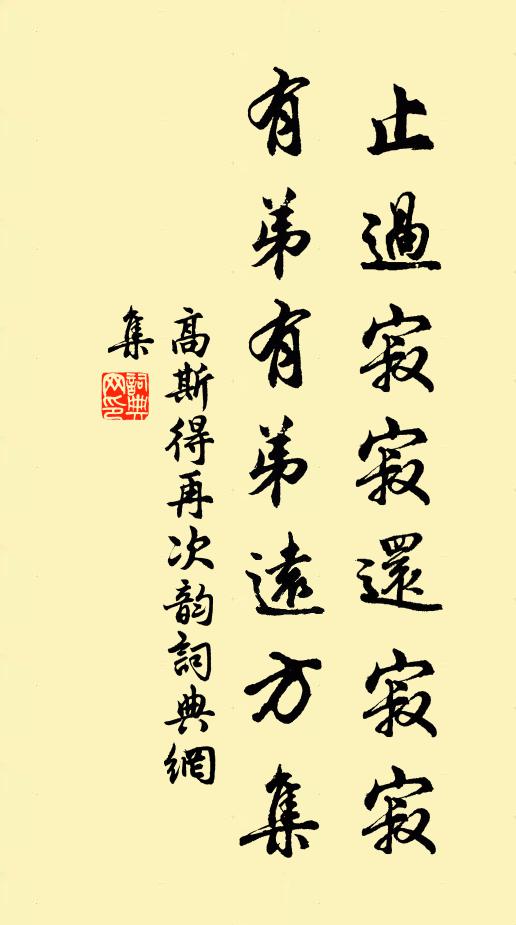 止過寂寂還寂寂
有弟有弟遠方集
高斯得再次韵詞典網
集
詞典
网印